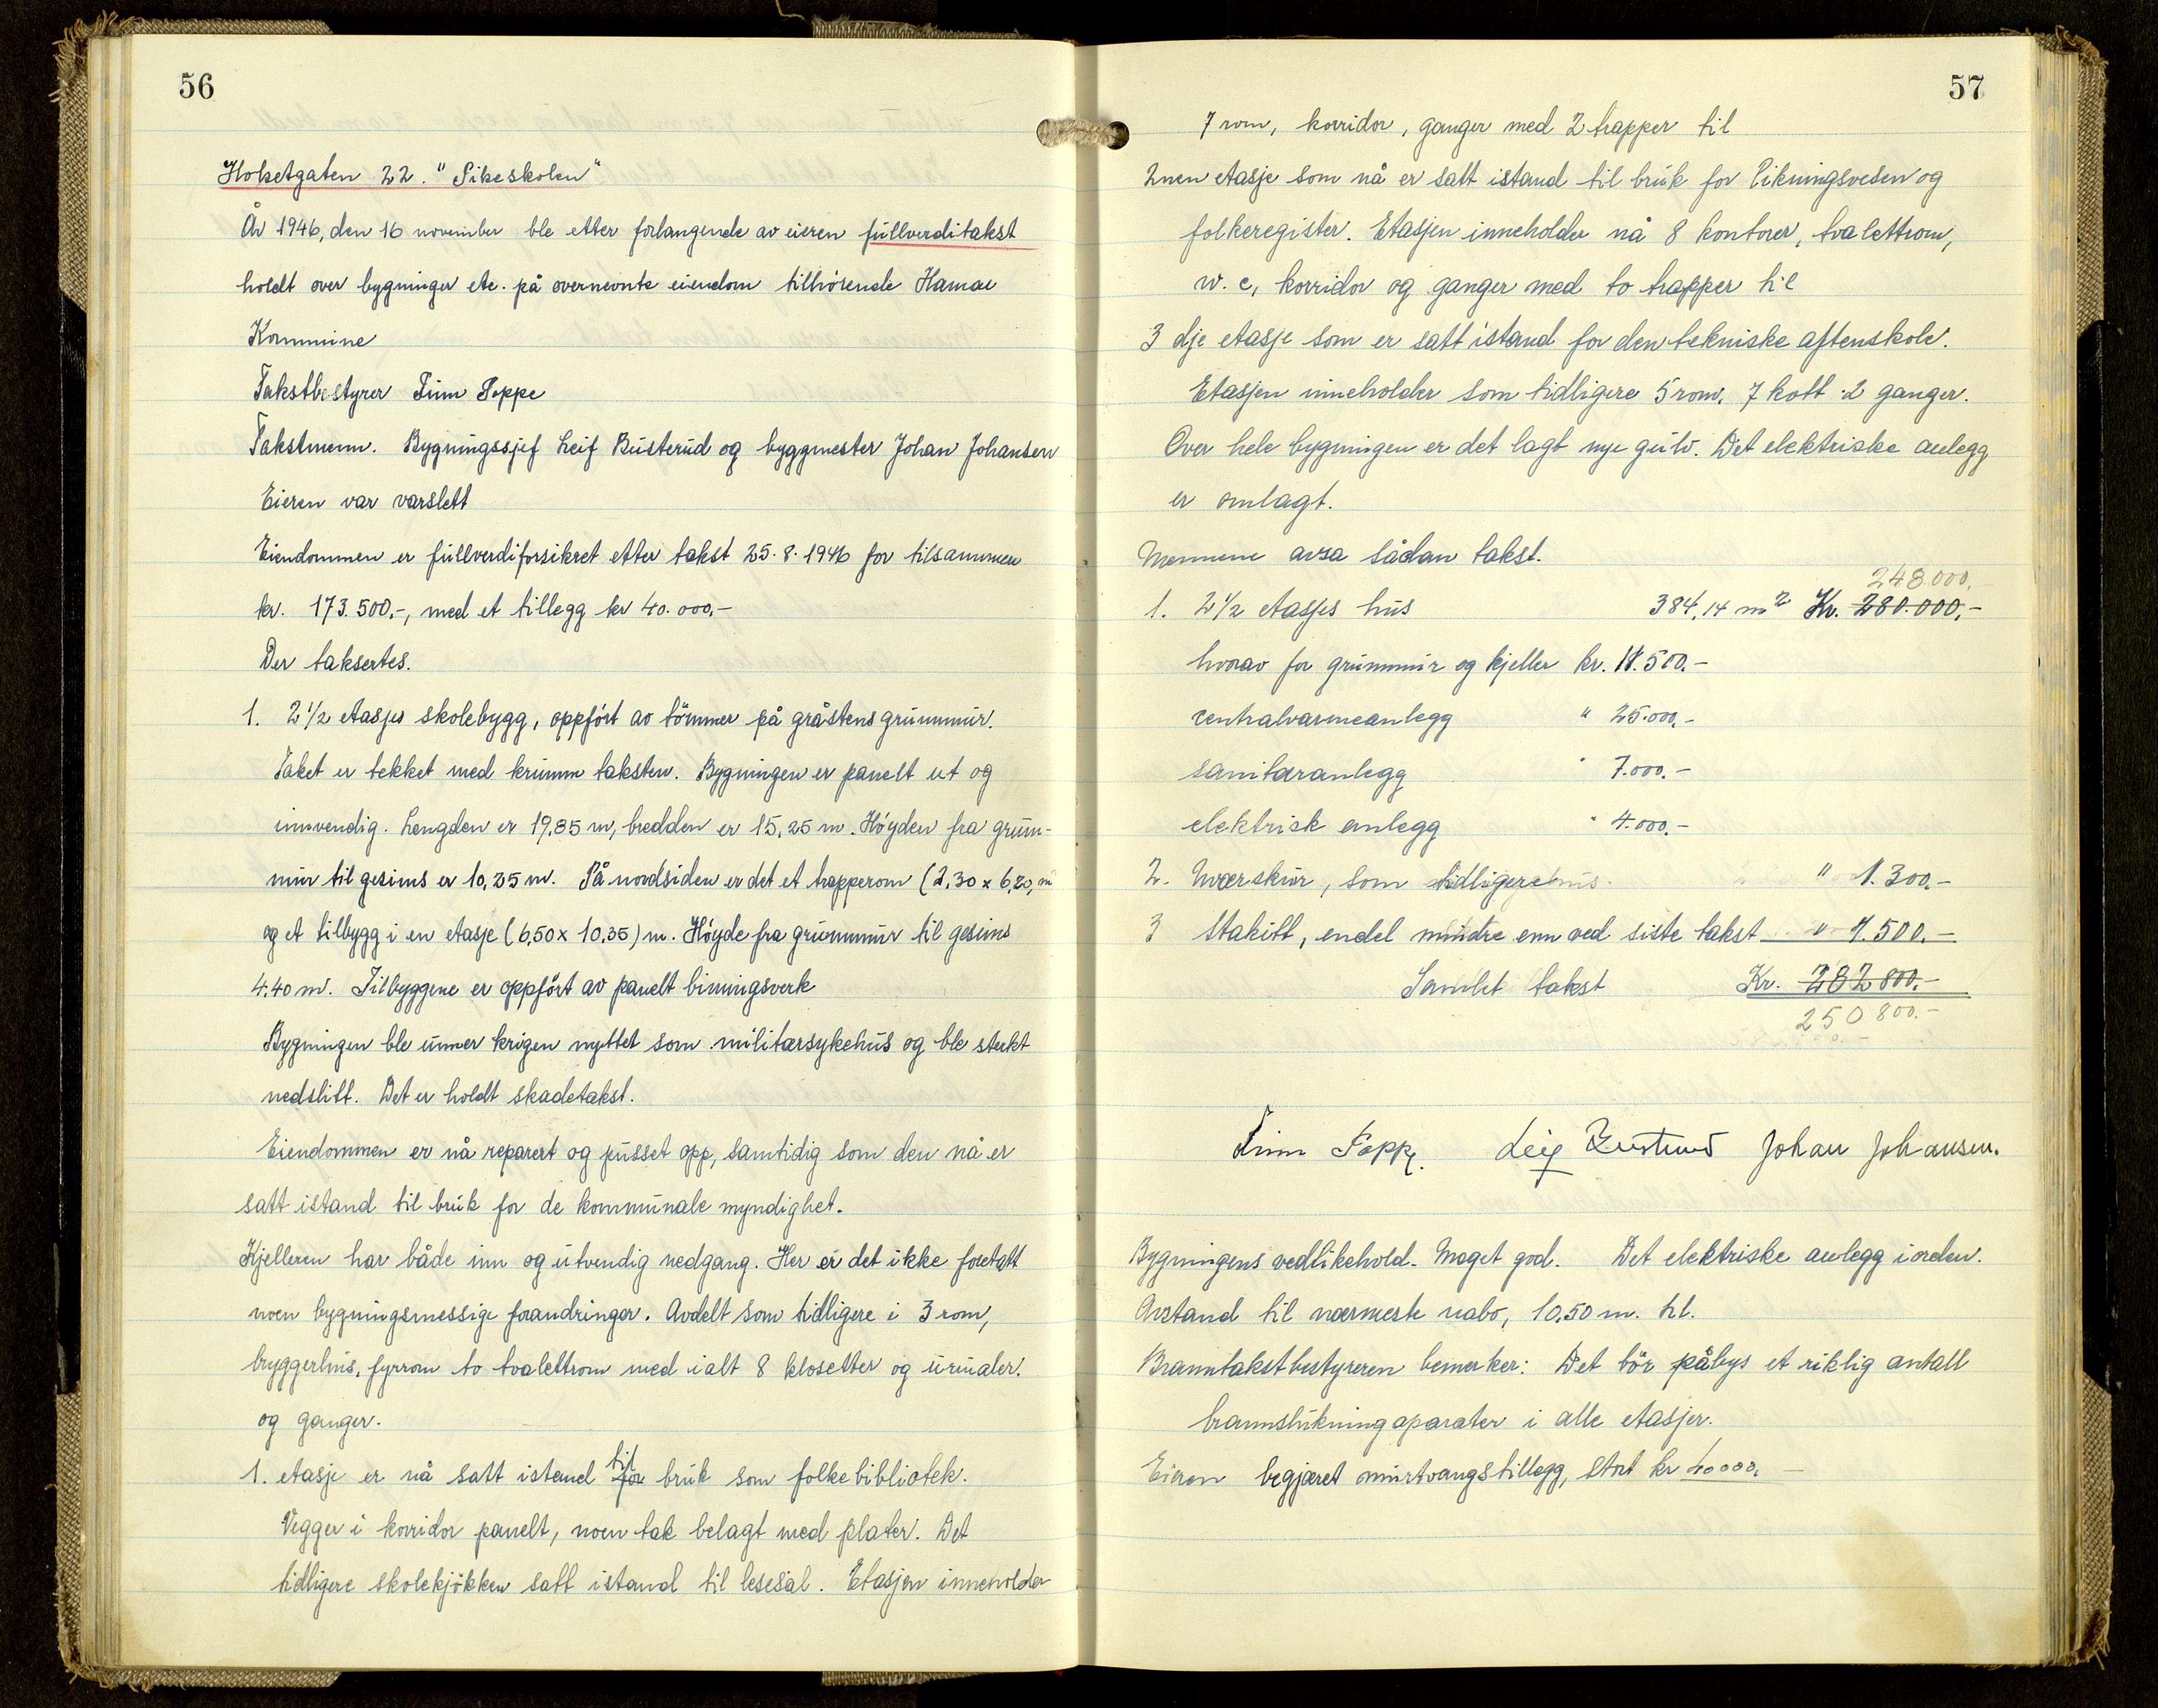 56
Holsetgaten 22. "Pikeskolen"
År 1946, den 16 november ble etter forlangende av eieren fullverditakst
holdt over bygninger etc. på overnevnte eiendom tilhörende Hamar
Kommune
Takstbestyrer Finn Poppe
Takstmenn. Bygningssjef Leif Busterud og byggmester Johan Johansen
Eieren var varslett
Eiendommen er fullverdiforsikret etter takst 25.8.1946 for tilsammen
kr. 173.500,-, med et tillegg kr 40.000,-
Der taksertes.
1. 2 1/2 etasjes skolebygg, oppfört av tömmer på gråstens grunnmur.
Taket er tekket med krumm taksten. Bygningen er panelt ut og
innvendig. Lengden er 19,85 m, bredden er 15,25 m. Höyden fra grunn-
mur til gesims er 10,35 m. På nordsiden er det et trapperom (2,30 x 6,20, m
og et tilbygg i en etasje (6,50 x 10,35) m. Höyde fra grunnmur til gesims
4.40 m. Tilbyggene er oppfört av panelt binningsverk
Bygningen ble unner krigen nyttet som militærsykehus og ble sterkt
nedslitt. Det er holdt skadetakst.
Eiendommen er nå reparert og pusset opp, samtidig som den nå er
satt istand til bruk for de kommunale myndighet.
Kjelleren har både inn og utvendig nedgang. Her er det ikke foretatt
noen bygningsmessige forandringer. Avdelt som tidligere i 3 rom,
bryggerhus, fyrrom to toalettrom med ialt 8 klosetter og urinaler.
og ganger.
1. etasje er nå satt istand for til bruk som folkebibliotek.
Vegger i korridor panelt, noen tak belagt med plater. Det
tidligere skolekjökken satt istand til lesesal. Etasjen inneholder
57
7 rom, korridor, ganger med 2 trapper til
2nen etasje som nå er satt istand til bruk for likningsvesen og
folkeregister. Etasjen inneholder nå 8 kontorer, toalettrom,
w. c, korridor og ganger med to trapper til
3 dje etasje som er satt istand for den tekniske aftenskole.
Etasjen inneholder som tidligere 5 rom, 7 kott 2 ganger.
Over hele bygningen er det lagt nye gulv. Det elektriske anlegg
er omlagt.
Mennene avsa sådan takst.
248.000,-
1. 2 1/2 etasjes hus 384,14 m2 Kr. 280.000,-
hvorav for grunnmur og kjeller kr. 18.500.-
centralvarmeanlegg " 25.000,-
sanitæranlegg " 7.000.-
elektrisk anlegg " 4.000.-
2. som tidligere " 1.300,-
3 Stakitt, endel mindre enn ved siste takst " 1.500.-
Samlet takst Kr. 282 800.-
250 800.-
Finn Poppe. Leif Busterud Johan Johansen.
Bygningens vedlikehold. Meget god. Det elektriske anlegg i orden.
Avstand til nærmeste nabo, 10,50 m. til.
Branntakstbestyreren bemerker: Det bör påbys et riklig antall
brannslukningaparater i alle etasjer.
Eieren begjæret murtvangstillegg, stort kr 40000,-